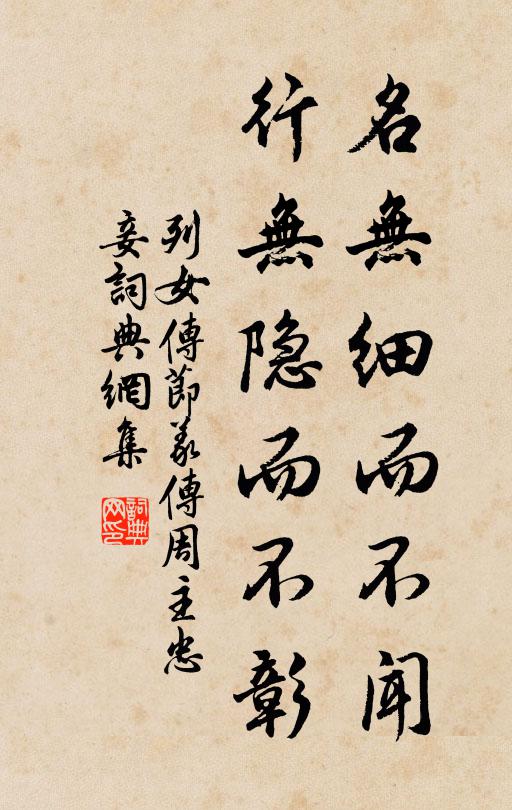 名無細而不聞
行無隐而不彰
列女傳節義傳周主忠
妾詞典網集
詞典
网印